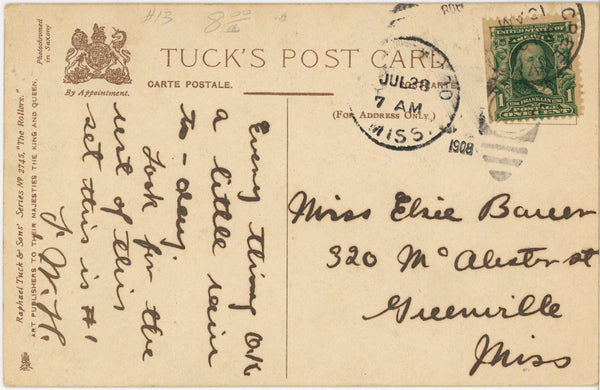 #13
8 00/a
Photochromed
in Saxony
By Appointment.
TUCK'S POST CARD
CARTE POSTALE.
(FOR ADDRESS ONLY.)
JUL 28
7 AM
MISS.
1908
UNITED STATES OF AMERICA
ONE CENT
Raphael Tuck & Sons' Series Nº 2745, "The Rollers."
ART PUBLISHERS TO THEIR MAJESTIES THE KING AND QUEEN.
Every thing O.K.
a little rain
to-day.
Look for the
rest of this
set this is #1
Miss Elsie Bauer
320 McAlister st
Greenville
Miss